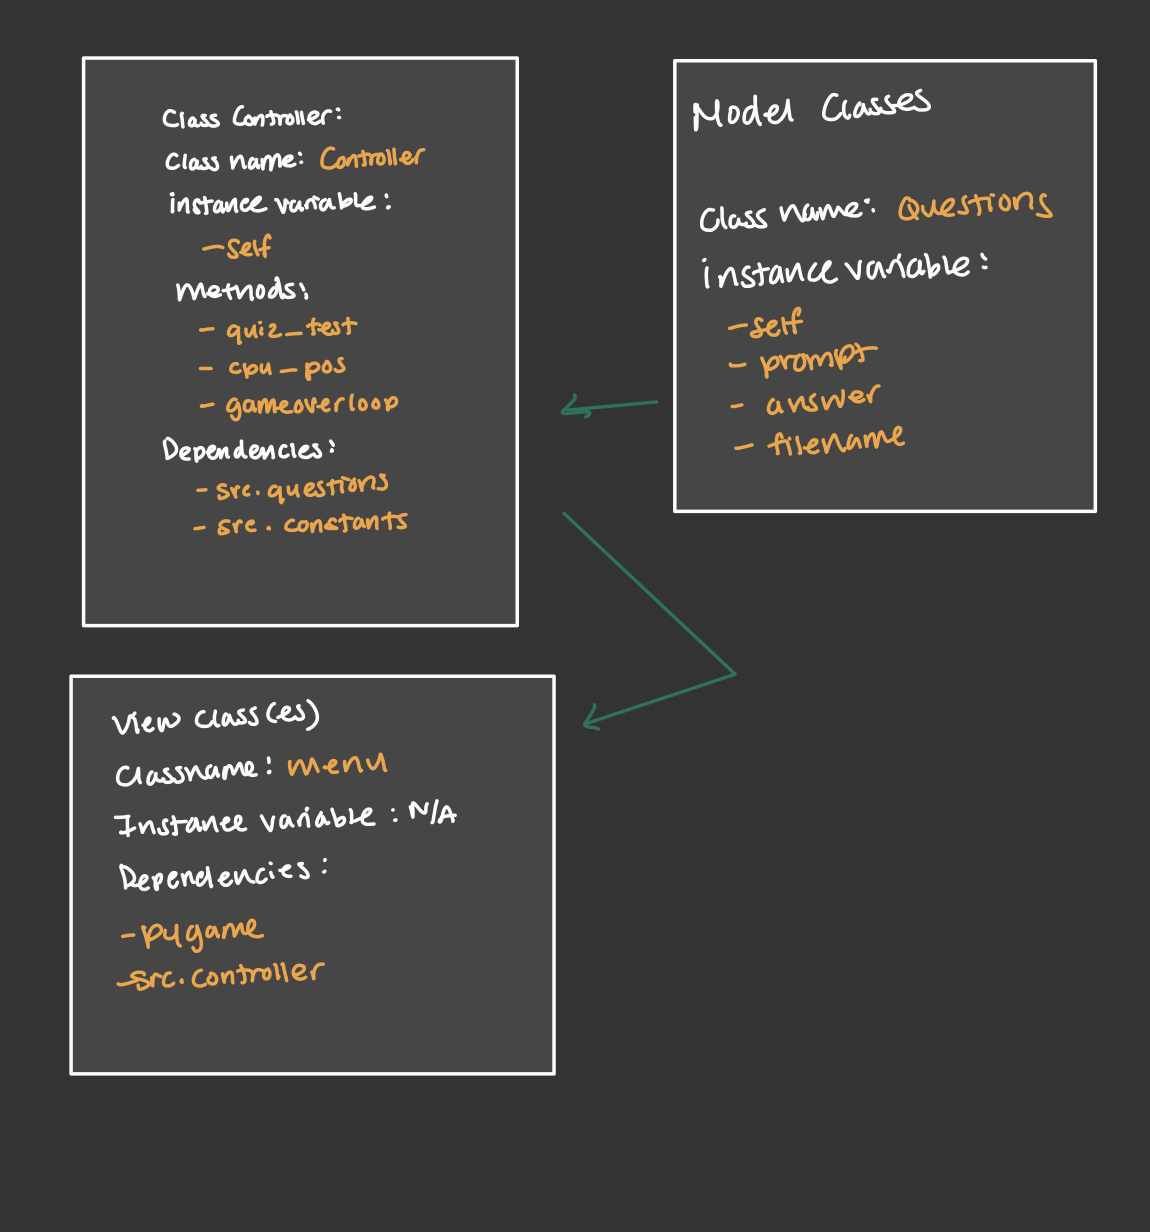 Class Controller:
Class name: Controller
instance variable:
- self
Methods:
- quiz_test
- cpu_pos
- gameoverloop
Dependencies:
- src.questions
- src.constants
Model Classes
Class name: Questions
instance variable:
- self
- prompt
- answer
- filename
View class(es)
Classname: menu
Instance variable: N/A
Dependencies:
- pygame
- src.controller